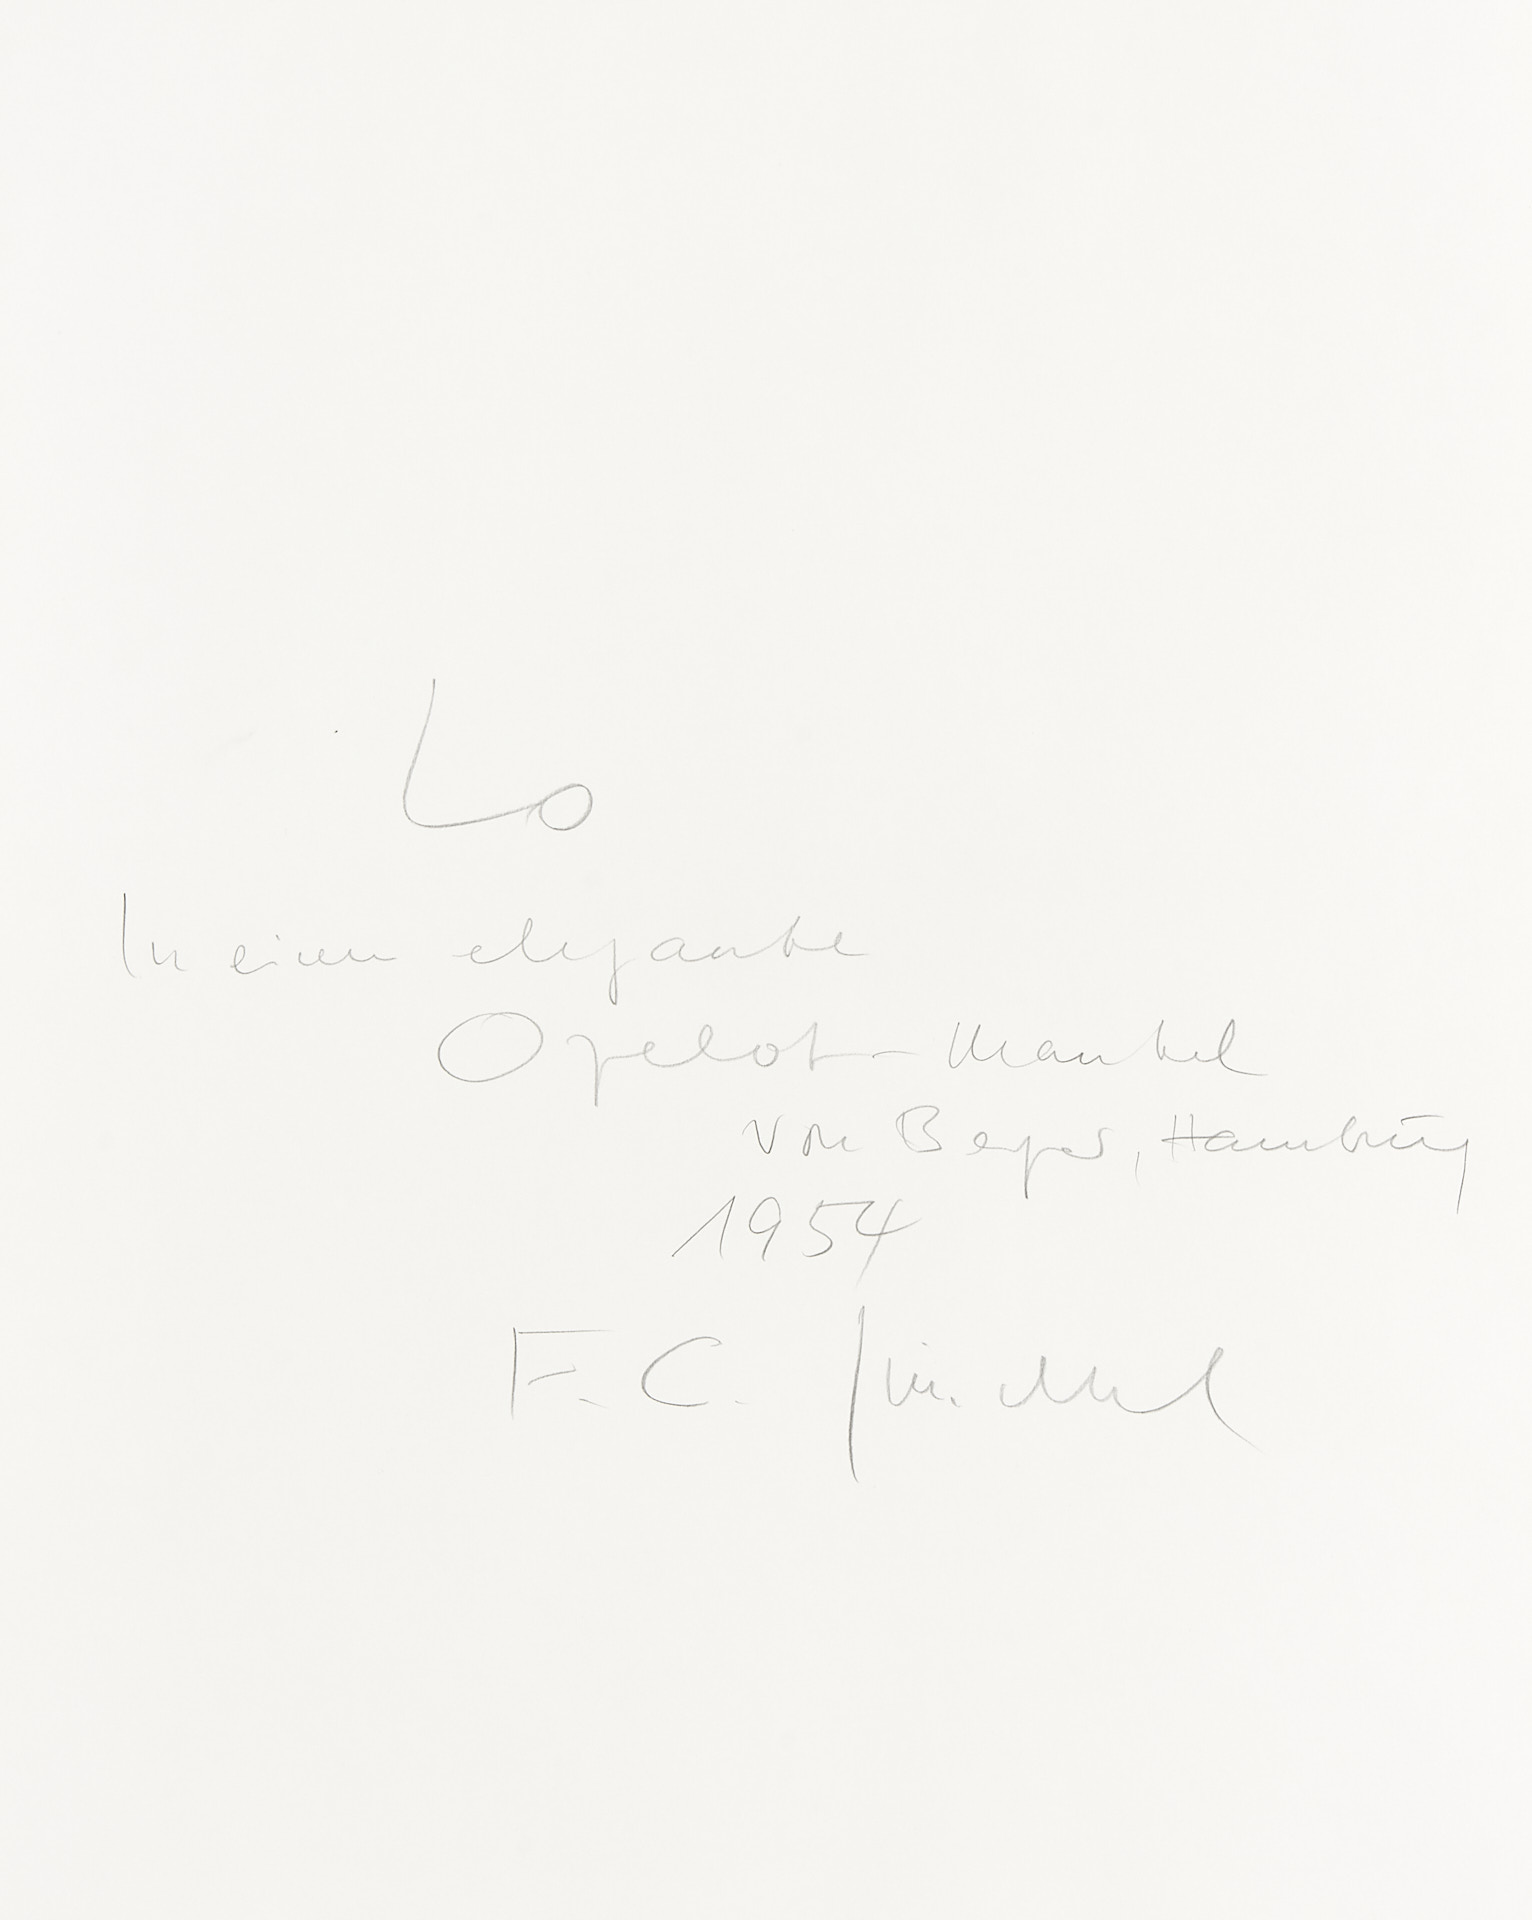 Lo
In einem eleganten
Ozelot-Mantel
von Berger, Hamburg
1954
F.C. Gundlach